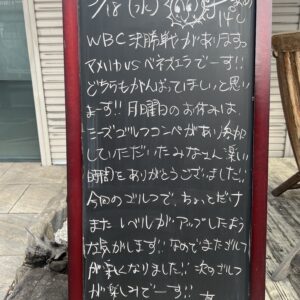 3/18(水)
14℃
WBC決勝戦があります。
アメリカVSベネズエラでーす!!
どちらもがんばってほしいと思い
まーす!! 月曜日のお休みは
ミーズゴルフコンペがあり参加
していただいたみなさん楽しい
時間をありがとうございました!!
今回のゴルフで、ちょっとだけ
またレベルがアップしたよう
な気がします!! なのでまたゴルフ
が楽しくなりました!! 次のゴルフ
が楽しみでーす!!